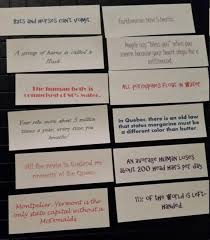 Rats and horses can't vomit.
A group of     is called a
The human body is
comprised of   % water.
Your ribs move about 5 million
times a year, every time you
breathe!
All the
Montpelier, Vermont is the
only state capital without a
McDonalds
Earthworms have 5 hearts.
People say "bless you" when you
sneeze because your heart stops for a
millisecond.
All porcupines float in water
In Quebec, there is an old law
that states margarine must be
a different color than butter.
An average human loses
about 200 head hairs per day.
11% of the world is left-
handed.